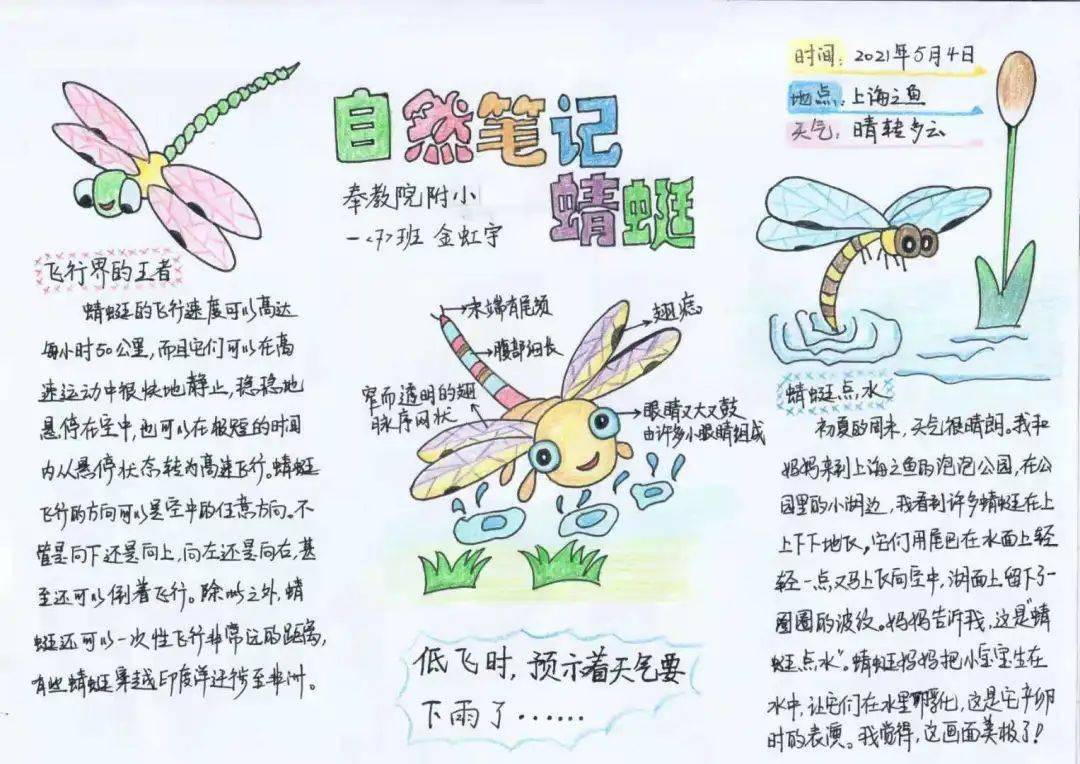 自然笔记
蜻蜓
奉教院附小
一<7>班 金虹宇
时间：2021年5月4日
地点：上海之鱼
天气：晴转多云
飞行界的王者
蜻蜓的飞行速度可以高达
每小时50公里，而且它们可以在高
速运动中很快地静止，稳稳地
悬停在空中，也可以在极短的时间
内从悬停状态转为高速飞行。蜻蜓
飞行的方向可以是空中的任意方向。不
管是向下还是向上，向左还是向右，甚
至还可以倒着飞行。除此之外，蜻
蜓还可以一次性飞行非常远的距离，
有些蜻蜓穿越印度洋迁徙至非洲。
末端有尾须
翅痣
腹部细长
窄而透明的翅
脉序网状
眼睛又大又鼓
由许多小眼睛组成
低飞时，预示着天气要
下雨了······
蜻蜓点水
初夏的周末，天气很晴朗。我和
妈妈来到上海之鱼的泡泡公园，在公
园里的小湖边，我看到许多蜻蜓在上
上下下地飞。它们用尾巴在水面上轻
轻一点又马上飞向空中，湖面上留下了一
圈圈的波纹。妈妈告诉我，这是“蜻
蜓点水”。蜻蜓妈妈把小宝宝生在
水中，让它们在水里孵化，这是它产卵
时的表演。我觉得，这画面美极了！